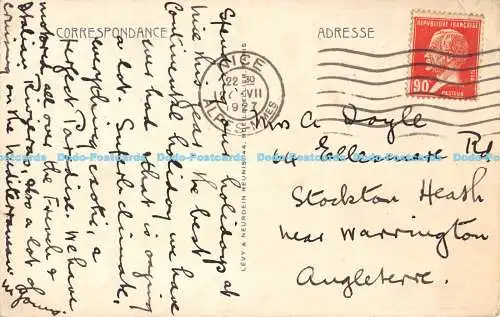 CORRESPONDANCE
Spending our holidays at
Nice this year the best
Continental holiday we have
ever had & that is saying
a lot. Superb climate,
everything exotic, a
perfect Paradise. We have
motored all over the French &
Italian Rivieras, also a lot of
cruising on the Mediterranean in
LÉVY & NEURDEIN RÉUNIS, 44, RUE
ADRESSE
NICE
22 30
VII
ALPES MMES
RÉPUBLIQUE FRANÇAISE
90
PASTEUR
Mrs A Doyle
64 Ellesmere Rd
Stockton Heath
near Warrington
Angleterre.
Dodo-Postcards Dodo-Postcards Dodo-Postcards Dodo-Postcards Dodo-Postcards Dodo-Postcards